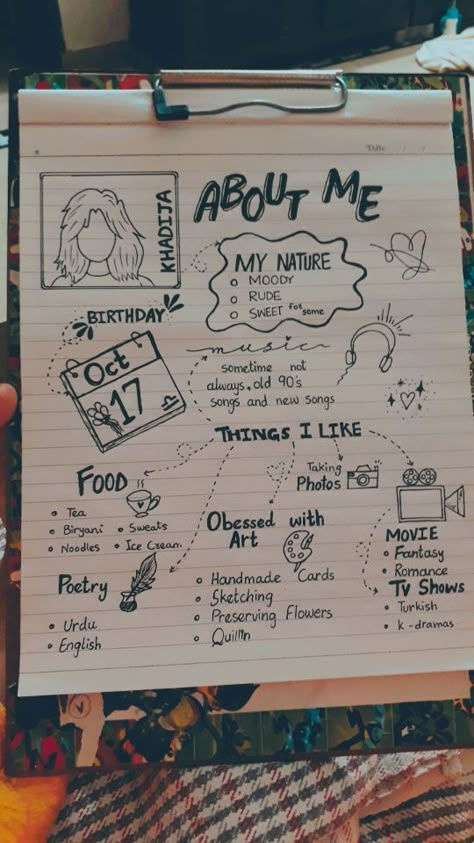 Date
ABOUT ME
KHADIJA
MY NATURE
MOODY
RUDE
SWEET for some
BIRTHDAY
Oct
17
music
sometime not
always, old 90's
songs and new songs
THINGS I LIKE
FOOD
Tea
Biryani
Sweats
Noodles
Ice Cream
Taking
Photos
Obsessed with
Art
Handmade Cards
Sketching
Preserving Flowers
Quillin
MOVIE
Fantasy
Romance
TV Shows
Turkish
k-dramas
Poetry
Urdu
English